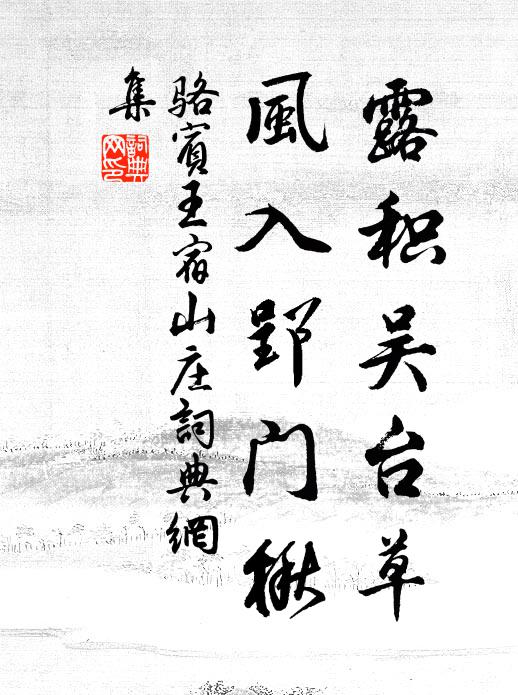 露积吴台草
風入郢门楸
骆賓王宿山庄詞典網
集
詞典网印